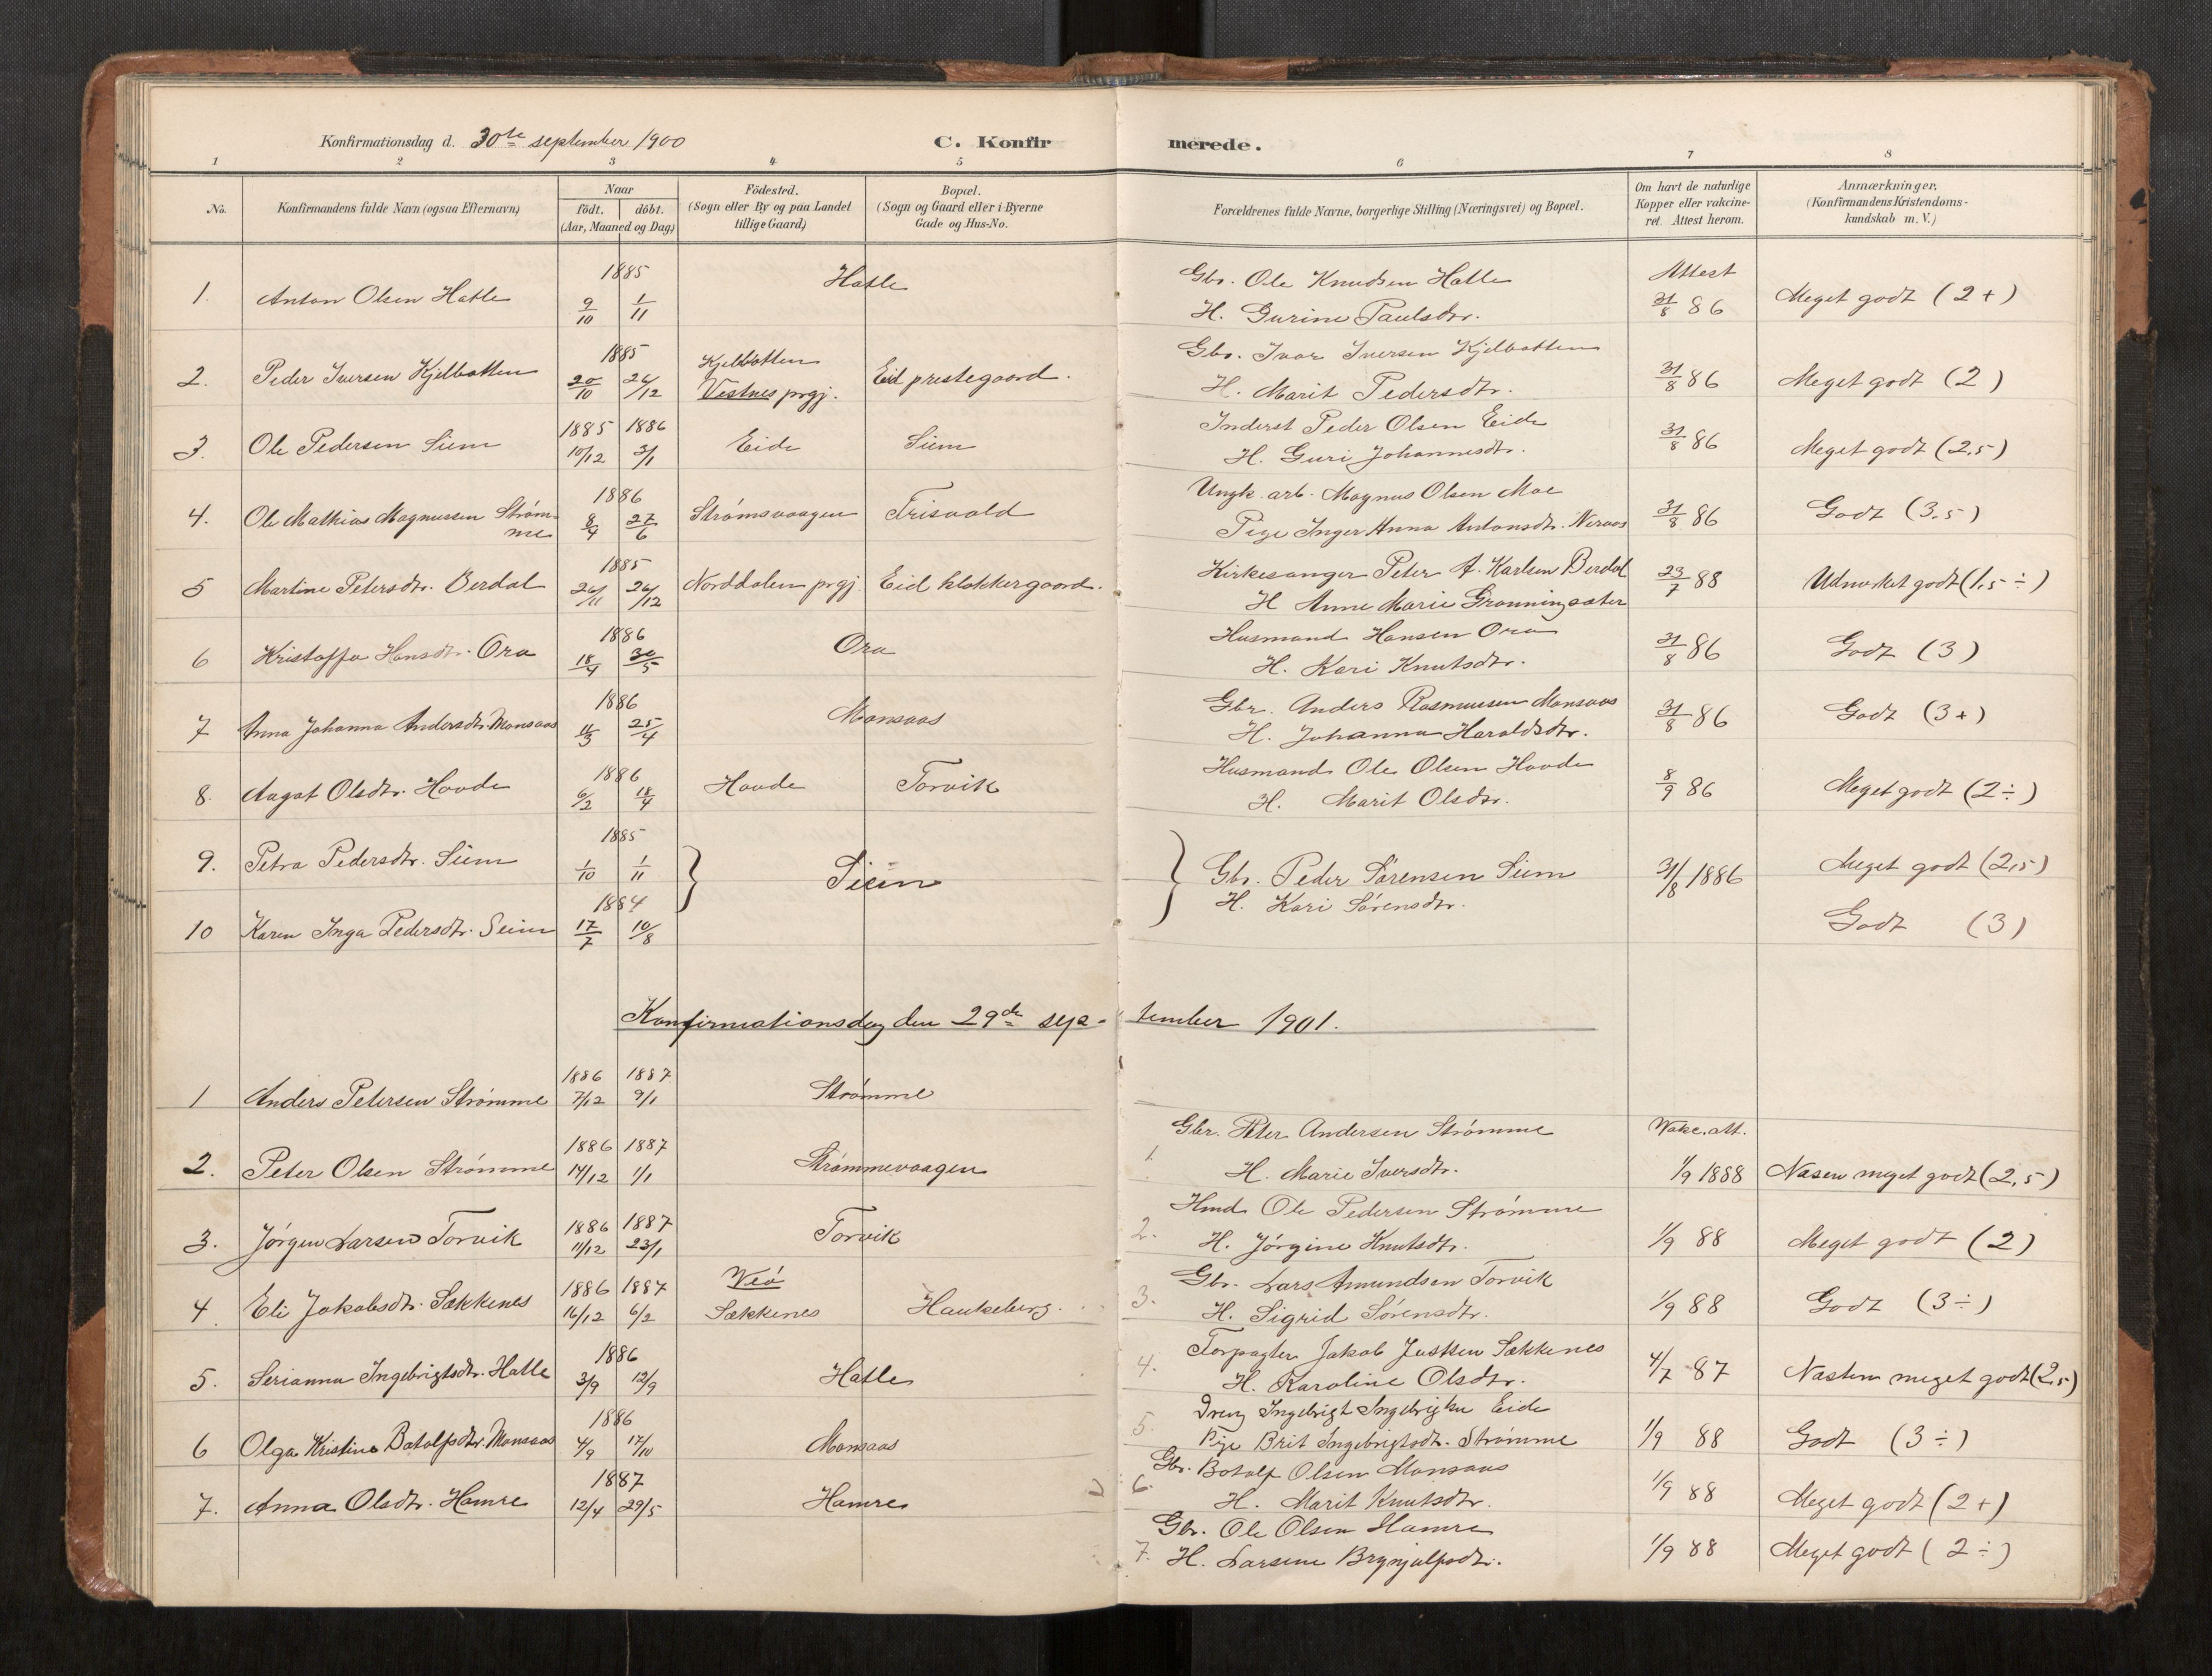 Konfirmationsdag d. 30te september 1900 C. Konfirmerede.
1 2 3 4 5 6 7 8
No. Konfirmandens fulde Navn (ogsaa Efternavn) Naar Födested. Bopæl. Forældrenes fulde Navne, borgerlige Stilling (Næringsvei) og Bopæl. Om havt de naturlige Anmærkninger.
födt. döbt. (Sogn eller By og paa Landet (Sogn og Gaard eller i Byerne Kopper eller vakcine- (Konfirmandens Kristendoms-
(Aar, Maaned og Dag) tillige Gaard) Gade og Hus-No. ret. Attest herom. kundskab m. V.)
1. Anton Olsen Hatle 1885 9/10 1/11 Hatle Gbr. Ole Knudsen Hatle Attest 31/8 86 Meget godt (2+)
H. Gurine Paulsdtr.
2. Peder Iversen Kjelbotten 1885 20/10 26/12 Kjelbotten Vestnes prgj. Eid prestegaard. Gbr. Ivar Iversen Kjelbotten 31/8 86 Meget godt (2)
H. Marit Pedersdtr.
3. Ole Pedersen Siem 1885 10/12 1886 3/1 Eide Siem Inderst Peder Olsen Eide 31/8 86 Meget godt (2,5)
H. Guri Johannesdtr.
4. Ole Mathias Magnussen Strøm- 1886 8/4 27/6 Strømsvaagen Frisvold Ungk. arb. Magnus Olsen Moe 31/8 86 Godt (3,5)
me Pige Inger Anna Antonsdtr. Neraas
5 Martine Petersdtr. Berdal 1885 26/11 26/12 Norddalen prgj. Eid klokkergaard. Kirkesanger Peter A. Karlsen Berdal 23/7 88 Udmerket godt (1,5 ÷)
H Anne Marie Grønningsæter
6 Kristoffa Hansdtr. Ora 1886 18/4 30/5 Ora Husmand Hansen Ora 31/8 86 Godt (3)
H. Kari Knutsdtr.
7 Anna Johanna Andersdtr. Monsaas 1886 11/3 25/4 Monsaas Gbr. Anders Rasmussen Monsaas 31/8 86 Godt (3+)
H. Johanna Haraldsdtr.
8. Aagot Olsdtr. Hovde 1886 6/2 18/4 Hovde Torvik Husmand Ole Olsen Hovde 8/9 86 Meget godt (2÷)
H. Marit Olsdtr.
9. Petra Pedersdtr. Siem 1885 1/10 1/11 } Siem } Gbr. Peder Sørensen Siem 31/8 1886 Meget godt (2,5)
H. Kari Sørensdtr.
10 Karen Inga Pedersdtr. Seim 1884 17/7 10/8 Godt (3)
Konfirmationsdag den 29de september 1901.
1 Anders Petersen Strømme 1886 7/12 1887 9/1 Strømme
1. Gbr. Peter Andersen Strømme Vakc. att.
H. Marie Iversdtr. 1/9 1888 Næsen meget godt (2,5)
2. Peter Olsen Strømme 1886 14/12 1887 1/1 Strømmevaagen
2. Hmd. Ole Pedersen Strømme
H. Jørgine Knutsdtr. 1/9 88 Meget godt (2)
3. Jørgen Larsen Torvik 1886 11/12 1887 23/1 Torvik
3. Gbr. Lars Amundsen Torvik
H. Sigrid Sørensdtr. 1/9 88 Godt (3÷)
4. Eli Jakobsdtr. Sækkenes 1886 16/12 1887 6/2 Veø Sækkenes Haukeberg.
4. Forpagter Jakob Justsen Sækkenes
H. Karoline Olsdtr. 4/7 87 Næsten meget godt (2,5)
5. Serianna Ingebrigtsdtr. Hatle 1886 3/9 12/9 Hatle
5. Dreng Ingebrigt Ingebrigtsen Eide
Pige Brit Ingebrigtsdtr. Strømme 1/9 88 Godt (3÷)
6 Olga Kristine Botolfsdtr. Monsaas 1886 4/9 17/10 Monsaas
6. Gbr. Botolf Olsen Monsaas
H. Marit Knutsdtr. 1/9 88 Meget godt (2+)
7. Anna Olsdtr. Hamre 1887 12/4 29/5 Hamre
7. Gbr. Ole Olsen Hamre
H. Larsine Brynjulfsdtr. 1/9 88 Meget godt (2÷)